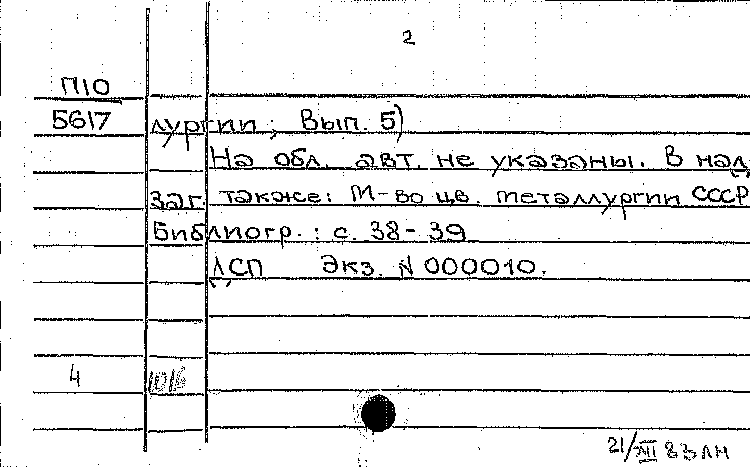 2
П10
5617
лургии; Вып. 5)
На обл. авт. не указаны. В над
заг. также: М-во цв. металлургии СССР
Библиогр.: с. 38-39
ДСП Экз. N 000010.
4
21/XII 83 лн